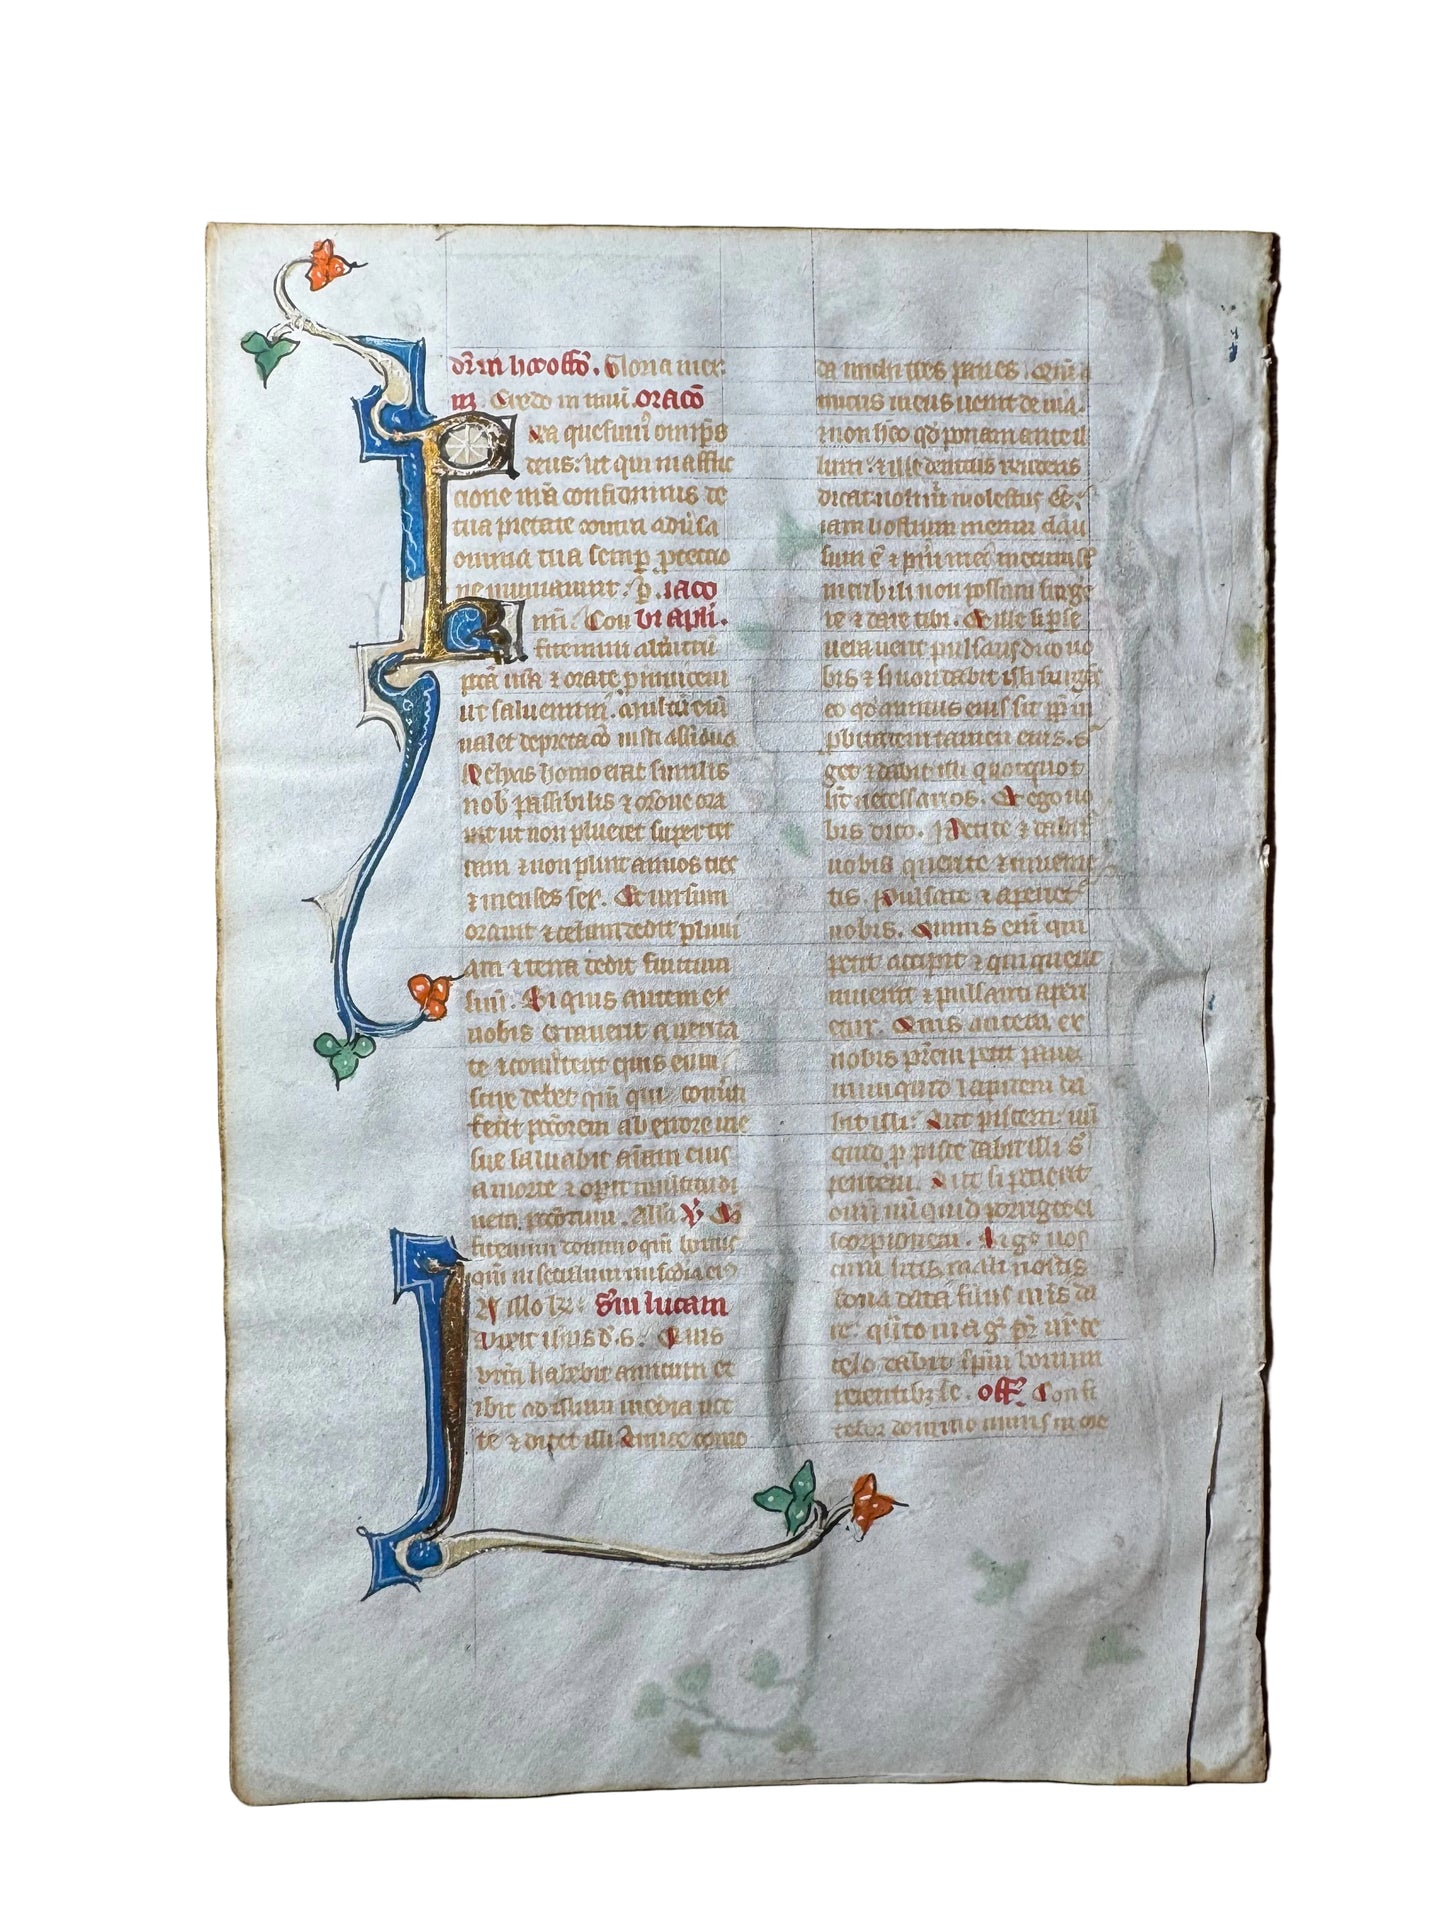 dr̄ in h̄ off̄o. Gloria in ex
Credo in unū. oracō
Presta quesumꝰ omīps
deus: ut qui in afflic
cione nr̄a confidimus de
tua pietate contra aduᵉsa
omnia tua semꝑ ꝓtectio
ne muniamur. ꝑ. iaco
mī. Con bi apłi.
fitemini altᵉutrū
pctā ura ⁊ orate p inuicem
ut saluemini. Multū eni
ualet dep̄cacō iusti assidua
Helyas homo erat similis
nob̄ passibilis ⁊ orōne ora
uit ut non plueret super ter
ram ⁊ non pluit annos tres
⁊ menses sex. Et rursum
orauit ⁊ celum dedit pluui
am ⁊ terra dedit fructum
suū. Si quis autem ex
uobis errauerit a uerita
te ⁊ conūterit quis eum
scire debet qm̄ qui conūti
fecit pctōrem ab errore uie
sue saluabit aīam eius
a morte ⁊ opit multitudi
nem pctōrum. Alła ꝟ Con
fitemini domino qm̄ bonus
qm̄ in sclm̄ misc̄dia eiꝰ
illo tr̄: Sm̄ lucam
Dixit ihūs d. s. Quis
urm̄ habebit amicum et
ibit ad illum media noc
te ⁊ dicet illi Amice como
da michi tres panes. Qm̄
amicus meus uenit de uia
⁊ non h̄eo qd̄ ponam ante il
lum. ⁊ ille deintus rndens
dicat noli m̄ molestus eē.
iam hostium meum clau
sum ē ⁊ pūi mei mecum st̄
in cubili non possum surge
re ⁊ dare tibi. Et ille si pse
uerauerit pulsans dico uo
bis ⁊ si non dabit illi surgēs
eo qd̄ amicus eius sit pp̄ im
probitatem tamen eius. sur
get ⁊ dabit illi quotquot
ht̄ necessarios. Et ego uo
bis dico. Petite ⁊ dabit̄
uobis querite ⁊ inuenie
tis. Pulsate ⁊ aperiet̄
uobis. Omnis enī qui
petit accipit ⁊ qui querit
inuenit ⁊ pulsanti aperi
etur. Quis autem ex
uobis pr̄em petit panem
numquid lapidem da
bit illi. Aut piscem: nū
quid p pisce dabit illi s̄
pentem. Aut si petierit
ouū nūquid porriget ei
scorpionem. Si ḡ uos
cum sitis mali nostis
bona data filiis uris da
re: quāto magꝭ pr̄ ur̄ de
celo dabit spm̄ bonum
petentibȝ se. Off̄. Confi
tebor domino nimis in ore